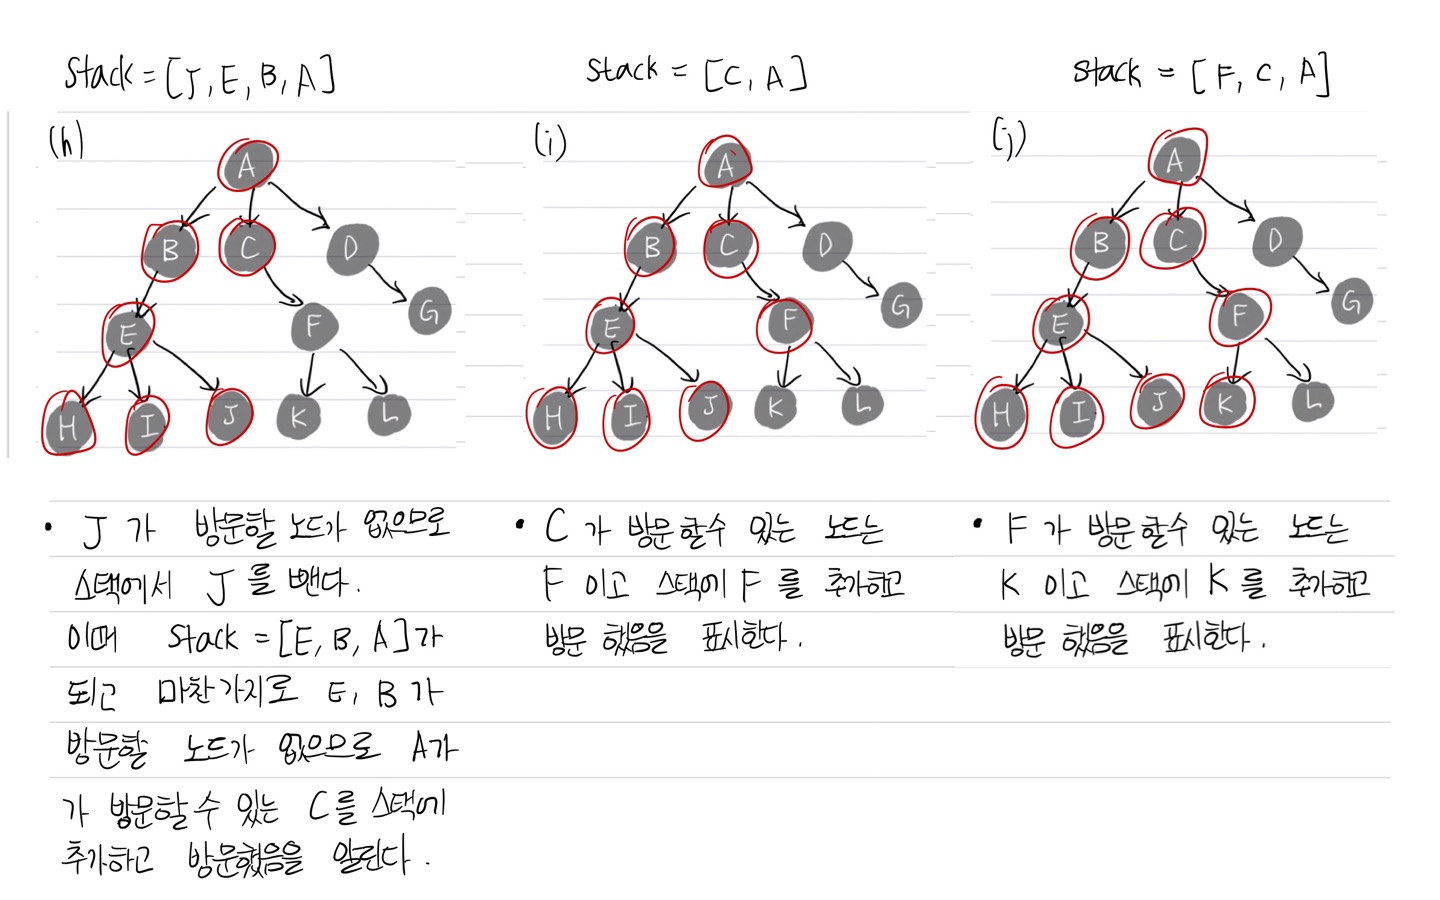 Stack = [J, E, B, A]
(h)
A
B C D
E F G
H I J K L
• J가 방문할 노드가 없으므로
스택에서 J를 뺀다.
이때 Stack = [E, B, A]가
되고 마찬가지로 E, B가
방문할 노드가 없으므로 A가
가 방문할수 있는 C를 스택에
추가하고 방문했음을 알린다.
Stack = [C, A]
(i)
A
B C D
E F G
H I J K L
• C가 방문할수 있는 노드는
F이고 스택에 F를 추가하고
방문 했음을 표시한다.
Stack = [F, C, A]
(j)
A
B C D
E F G
H I J K L
• F가 방문할수 있는 노드는
K이고 스택에 K를 추가하고
방문 했음을 표시한다.